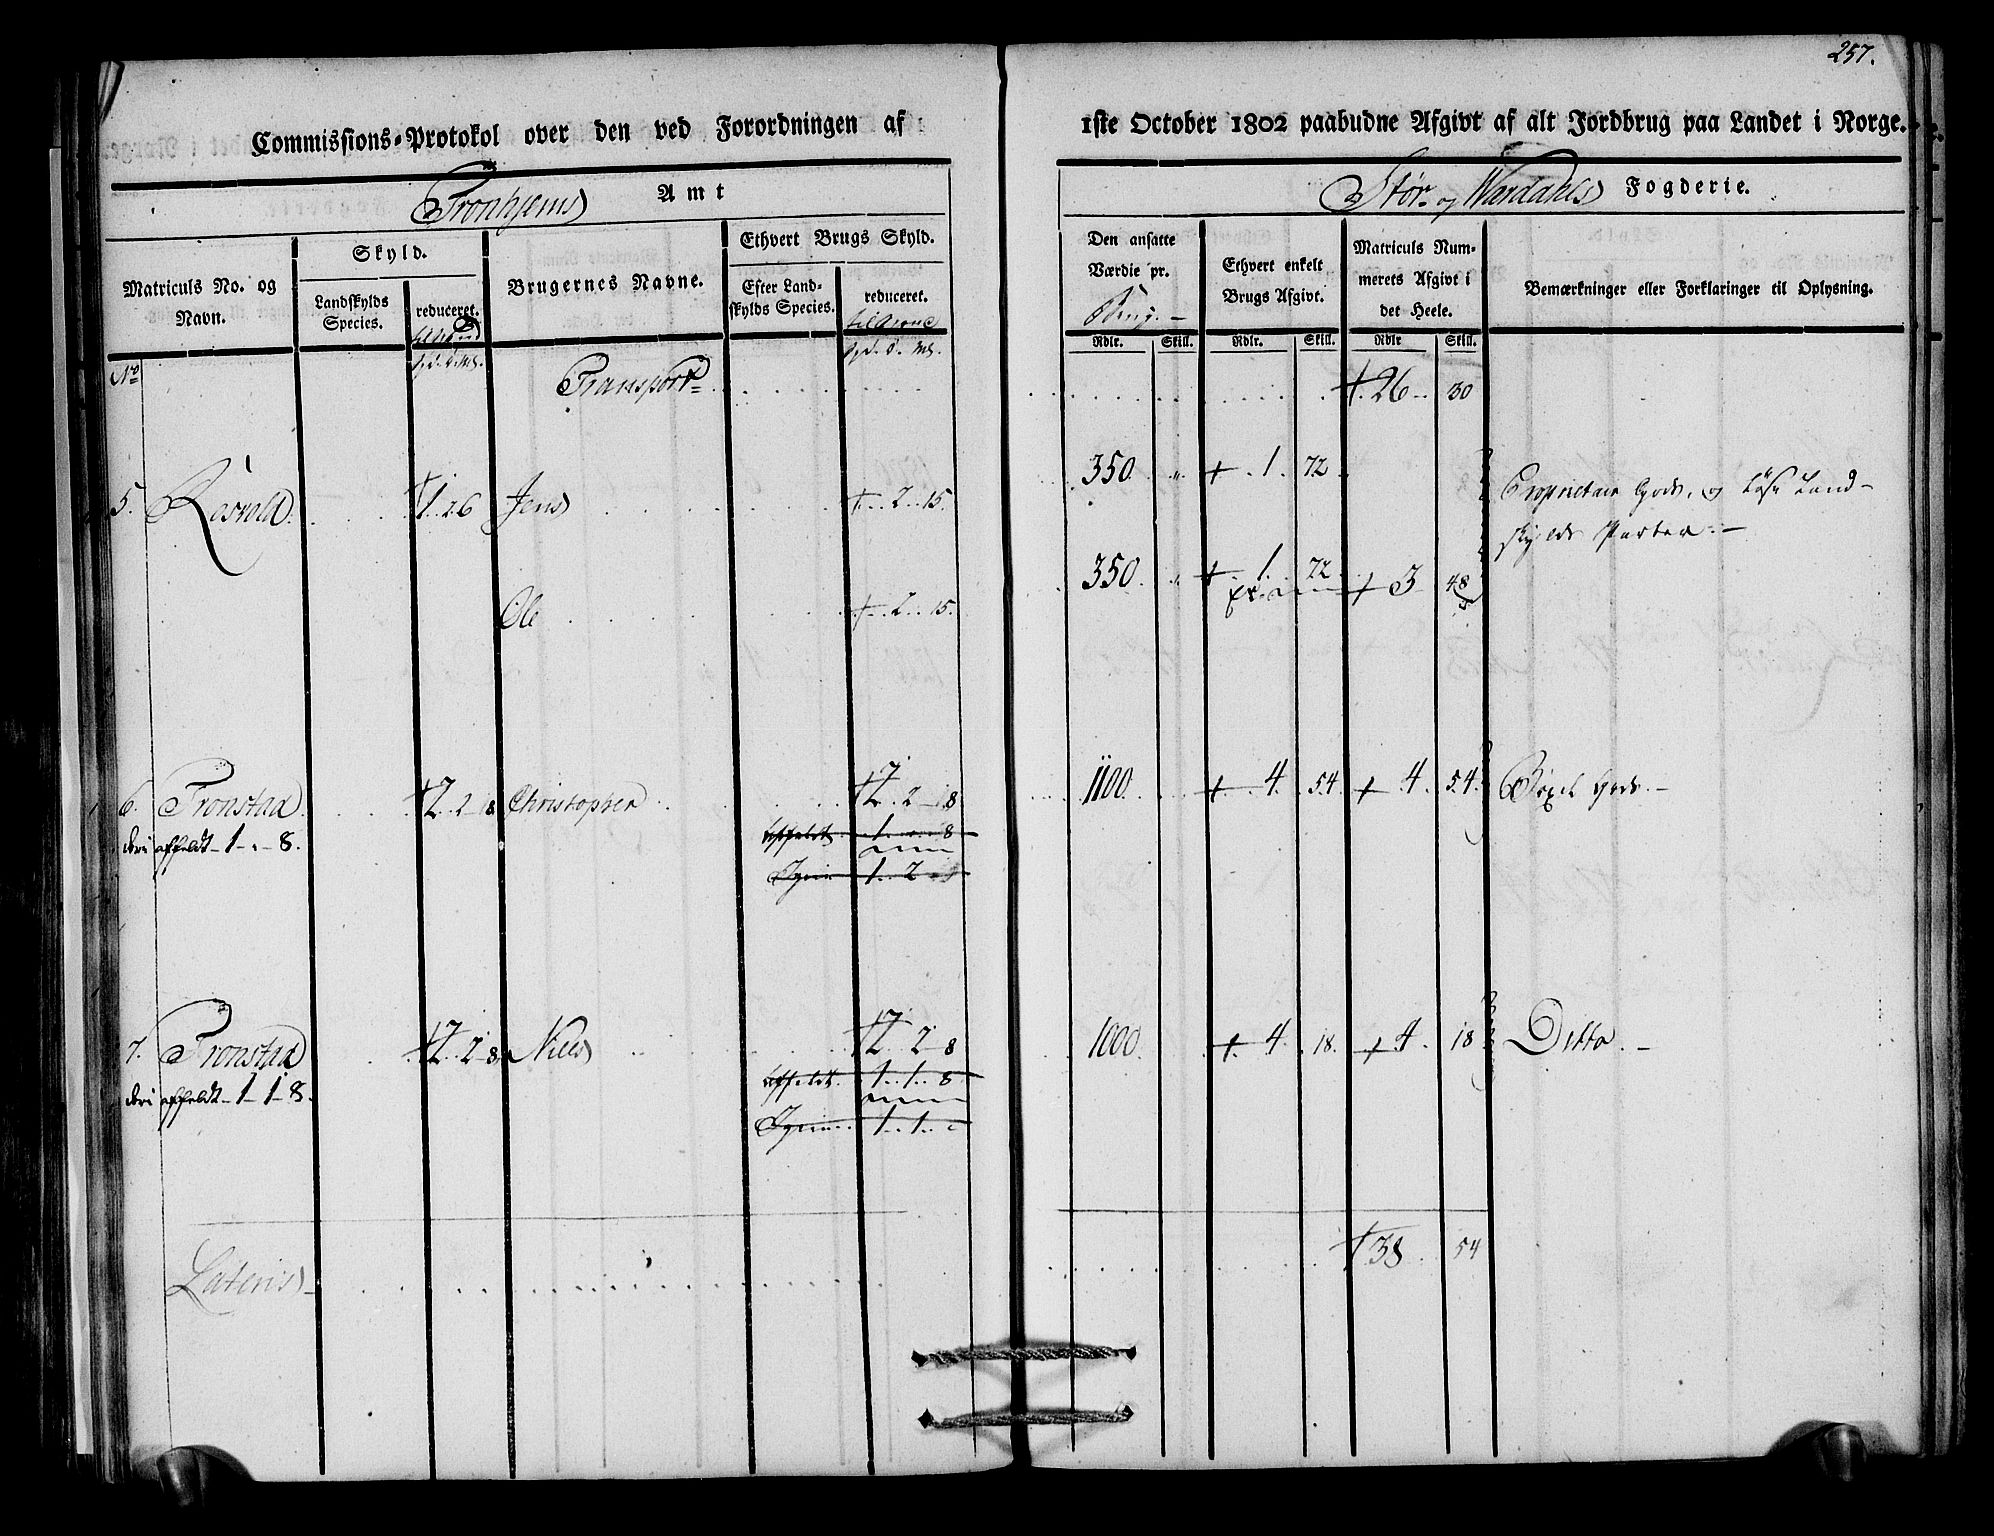 257.
Commissions-Protokol over den ved Forordningen af 1ste October 1802 paabudne Afgivt af alt Jordbrug paa Landet i Norge.
Tronhjems Amt
Stør- og Wærdahls Fogderie.
Matriculs No. og Navn.
Skyld.
Landskylds Species.
reduceret.
Brugernes Navne.
Ethvert Brugs Skyld.
Efter Landskylds Species.
reduceret.
Den ansatte Værdie pr.
Ethvert enkelt Brugs Afgivt.
Matriculs Nummerets Afgivt i det Heele.
Bemærkninger eller Forklaringer til Oplysning.
Rdlr. Skill. Rdlr. Skill. Rdlr Skill.
No Transport 26 30
5. Rosvold 1 . 26 Jens 2 . 15. 350 " 1 . 72 Proprietair Gods, og Løse Land-
skylds Parter.-
Ole 2 . 15. 350 " 1 . 72 3 48
6. Tronstad 2 . 2 - 8 Christopher 2 . 2 - 8 1100 4 . 54 4 . 54 Bøxel Gods.-
deri affeldt - 1 - " - 8. affeldt 1 . " . 8
Igien 1 . 2
7. Tronstad 2 . 2 - 8 Niels 2 . 2 - 8 1000 4 . 18 4 . 18 Ditto. -
deri affeldt - 1 - 1 - 8. affeldt 1 . 1 . 8
Igien 1 . 1 . "
Lateris 38 54